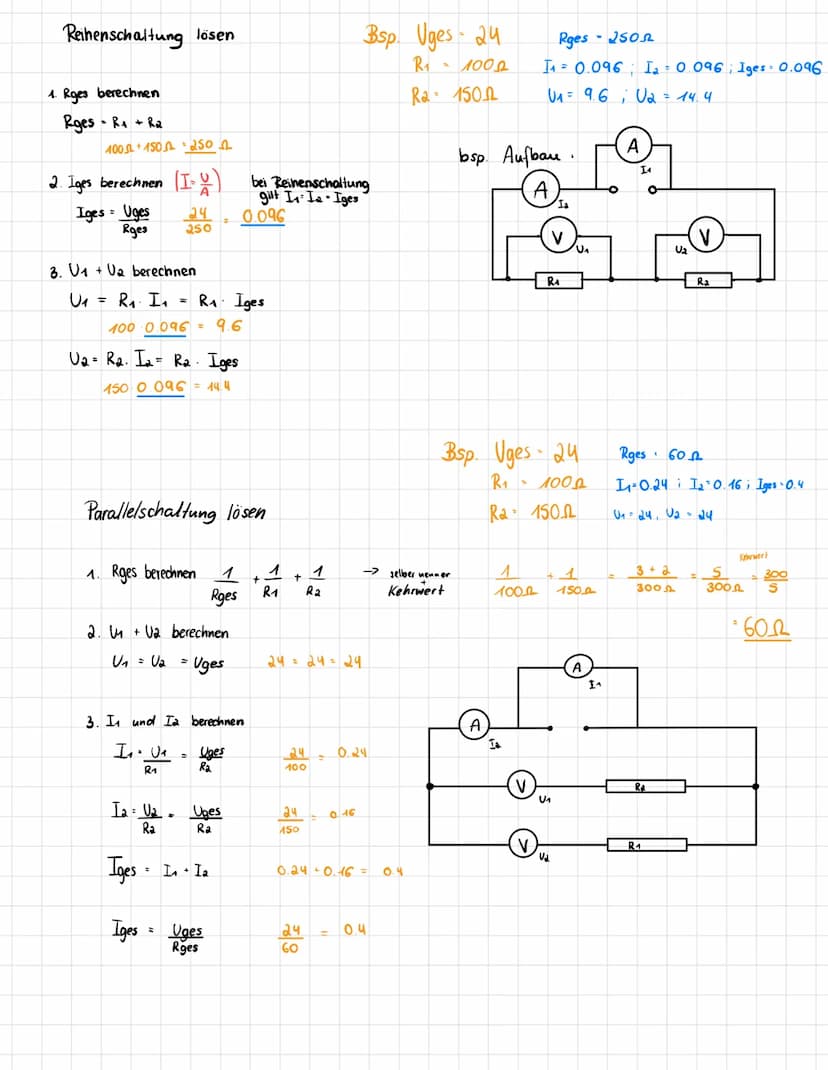 Reihenschaltung lösen
Bsp. Uges = 24
R1 = 100Ω
R2 = 150Ω
Rges = 250Ω
I1 = 0.096 ; I2 = 0.096 ; Iges = 0.096
U1 = 9.6 ; U2 = 14.4
1. Rges berechnen
Rges = R1 + R2
100Ω + 150Ω = 250 Ω
2. Iges berechnen (I = U/A)
bei Reihenschaltung
gilt I1 = I2 = Iges
Iges = Uges/Rges 24/250 = 0.096
3. U1 + U2 berechnen
U1 = R1 · I1 = R1 · Iges
100 · 0.096 = 9.6
U2 = R2 · I2 = R2 · Iges
150 · 0.096 = 14.4
bsp. Aufbau :
A
I1
A
I2
V
U1
V
U2
R1
R2
Bsp. Uges = 24
R1 = 100Ω
R2 = 150Ω
Rges = 60Ω
I1 = 0.24 ; I2 = 0.16 ; Iges = 0.4
U1 = 24, U2 = 24
Parallelschaltung lösen
1. Rges berechnen 1/Rges + 1/R1 + 1/R2 → selber nenner + Kehrwert
1/100Ω + 1/150Ω = 3 + 2/300Ω = 5/300Ω = 300/5
Kehrwert)
= 60Ω
2. U1 + U2 berechnen
U1 = U2 = Uges 24 = 24 = 24
3. I1 und I2 berechnen
I1 = U1/R1 = Uges/R2 24/100 = 0.24
I2 = U2/R2 = Uges/R2 24/150 = 0.16
Iges = I1 + I2 0.24 + 0.16 = 0.4
Iges = Uges/Rges 24/60 = 0.4
A
I1
A
I2
V
U1
R2
V
U2
R1